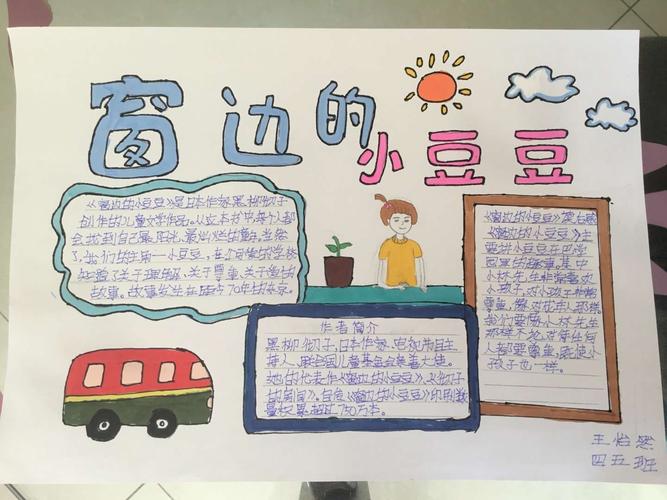 窗边的
小豆豆
《窗边的小豆豆》是日本作家黑柳彻子
创作的儿童文学作品。从这本书中每个人都
会找到自己最阳光、最灿烂的童年。当然
了，我们的主角一小豆豆，在小可爱的学校
知道了关于理解，关于尊重，关于爱的
故事。故事发生在距今70年的东京。
作者简介
黑柳彻子，日本作家，电视节目主
持人，联合国儿童基金会亲善大使。
她的代表作《窗边的小豆豆》、《彻子
的房间》。自《窗边的小豆豆》印刷数
量长累超过750万本。
《窗边的小豆豆》
《窗边的小豆豆》主
要讲小豆豆在巴学
园里的趣事，其中
小林先生非常喜欢
小孩子，对小孩子非常
尊重，像对成年人那样
我们要像小林先生
那样不论对待任何
人都要尊重，既使小
孩子也一样。
王怡然
四五班